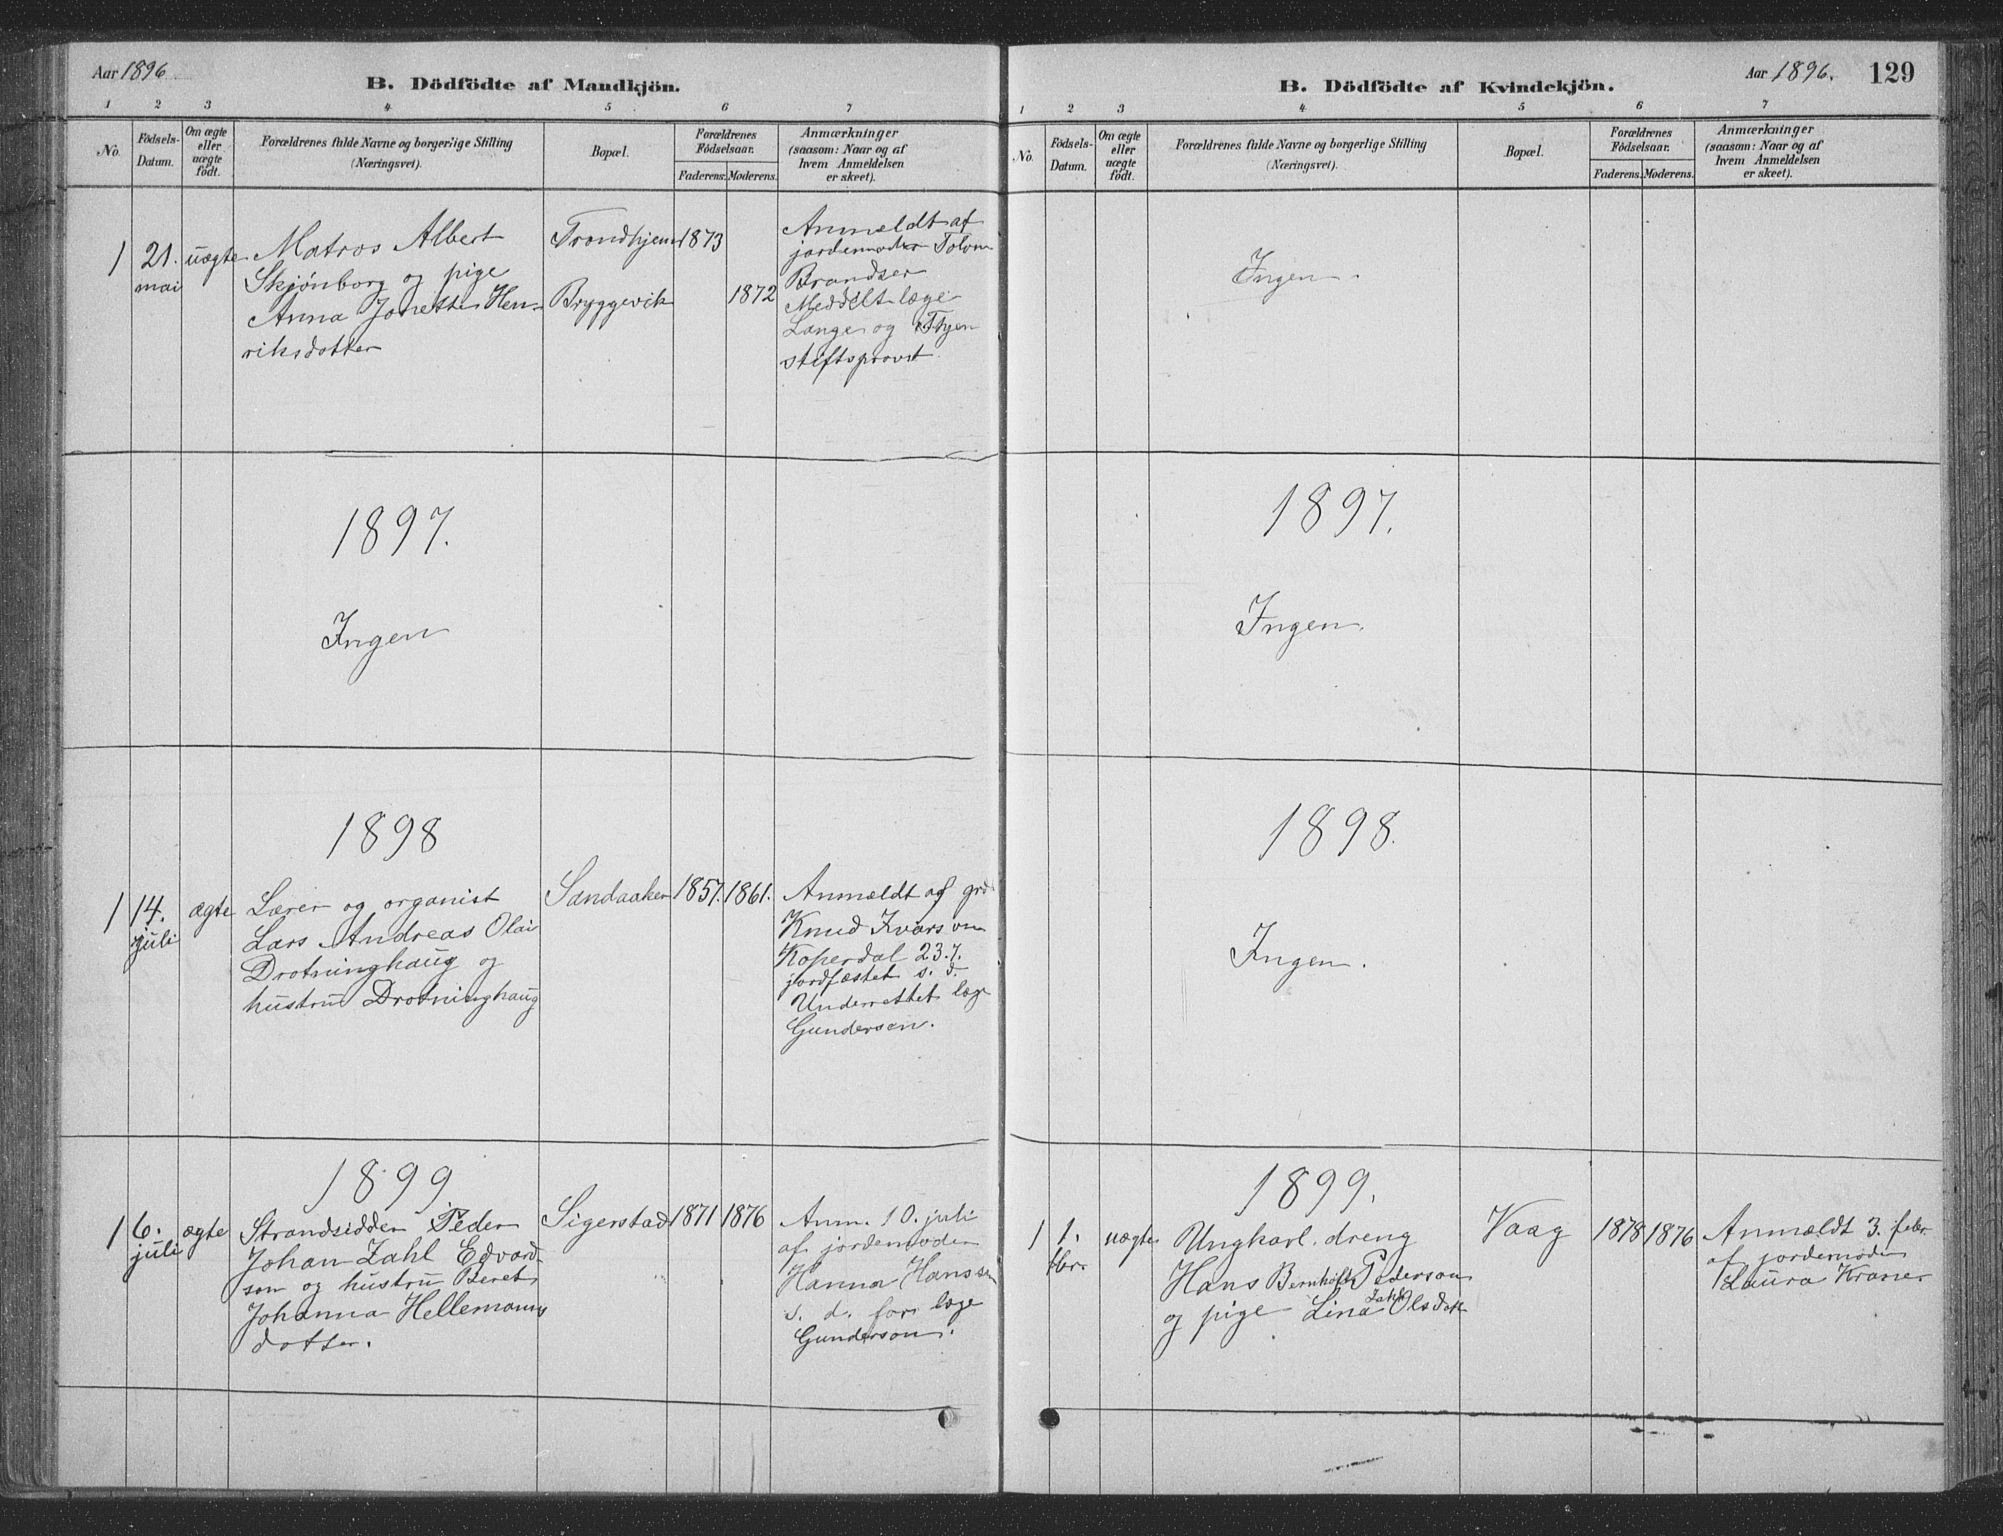 Aar 1896
B. Dödfödte af Mandkjön.
1 2 3 4 5 6 7
No.
Födsels-
Datum.
Om ægte
eller
uægte
födt.
Forældrenes fulde Navne og borgerlige Stilling
(Næringsvei).
Bopæl.
Forældrenes
Födselsaar.
Faderens. Moderens.
Anmærkninger
(saasom: Naar og af
hvem Anmeldelsen
er skeet).
1
21.
mai
uægte
Matros Albert
Skjönborg og pige
Anna Jonette Hen-
riksdotter
Trondhjem
Bryggevik
1873
1872
Anmeldt af
jordemoder
Meddelt læge
Lange og Thjem
stiftsprovst.
1897.
Ingen
1898
1
14.
juli
ægte
Lærer og organist
Lars Andreas Olai
Drotninghaug og
hustru Drotninghaug
Sandaaker
1857. 1861.
Anmeldt af
Knud Ivarson
Koperdal 23.7.
jordfæstet s. d.
Underrettet læge
Gunderson.
1899
1
6.
juli
ægte
Strandsidder Peder
Johan Zahl Edvard-
son og hustru Beret
Johanna Hellemanns
dotter.
Sigerstad
1871 1876
Anm. 10. juli
af jordemoder
Hanna Hanssen
s. d. for læge
Gunderson.
Aar 1896. 129
B. Dödfödte af Kvindekjön.
1 2 3 4 5 6 7
No.
Födsels-
Datum.
Om ægte
eller
uægte
födt.
Forældrenes fulde Navne og borgerlige Stilling
(Næringsvei).
Bopæl.
Forældrenes
Födselsaar.
Faderens. Moderens.
Anmærkninger
(saasom: Naar og af
hvem Anmeldelsen
er skeet).
Ingen.
1897.
Ingen.
1898.
Ingen.
1899.
1
1.
febr.
uægte
Ungkarl. dreng
Hans Bernhoft Pederson
og pige Lina Olsdot
Vaag
1878 1876
Anmældt 3. febr.
af jordemoder
Laura Kraner